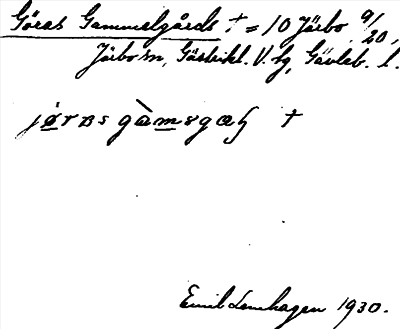 Göras Gammelgårds † = 10 Järbo 9/20,
Järbo sn, Gästrikl. V. hg, Gävleb. l.
†
Emil Lenhagen 1930.